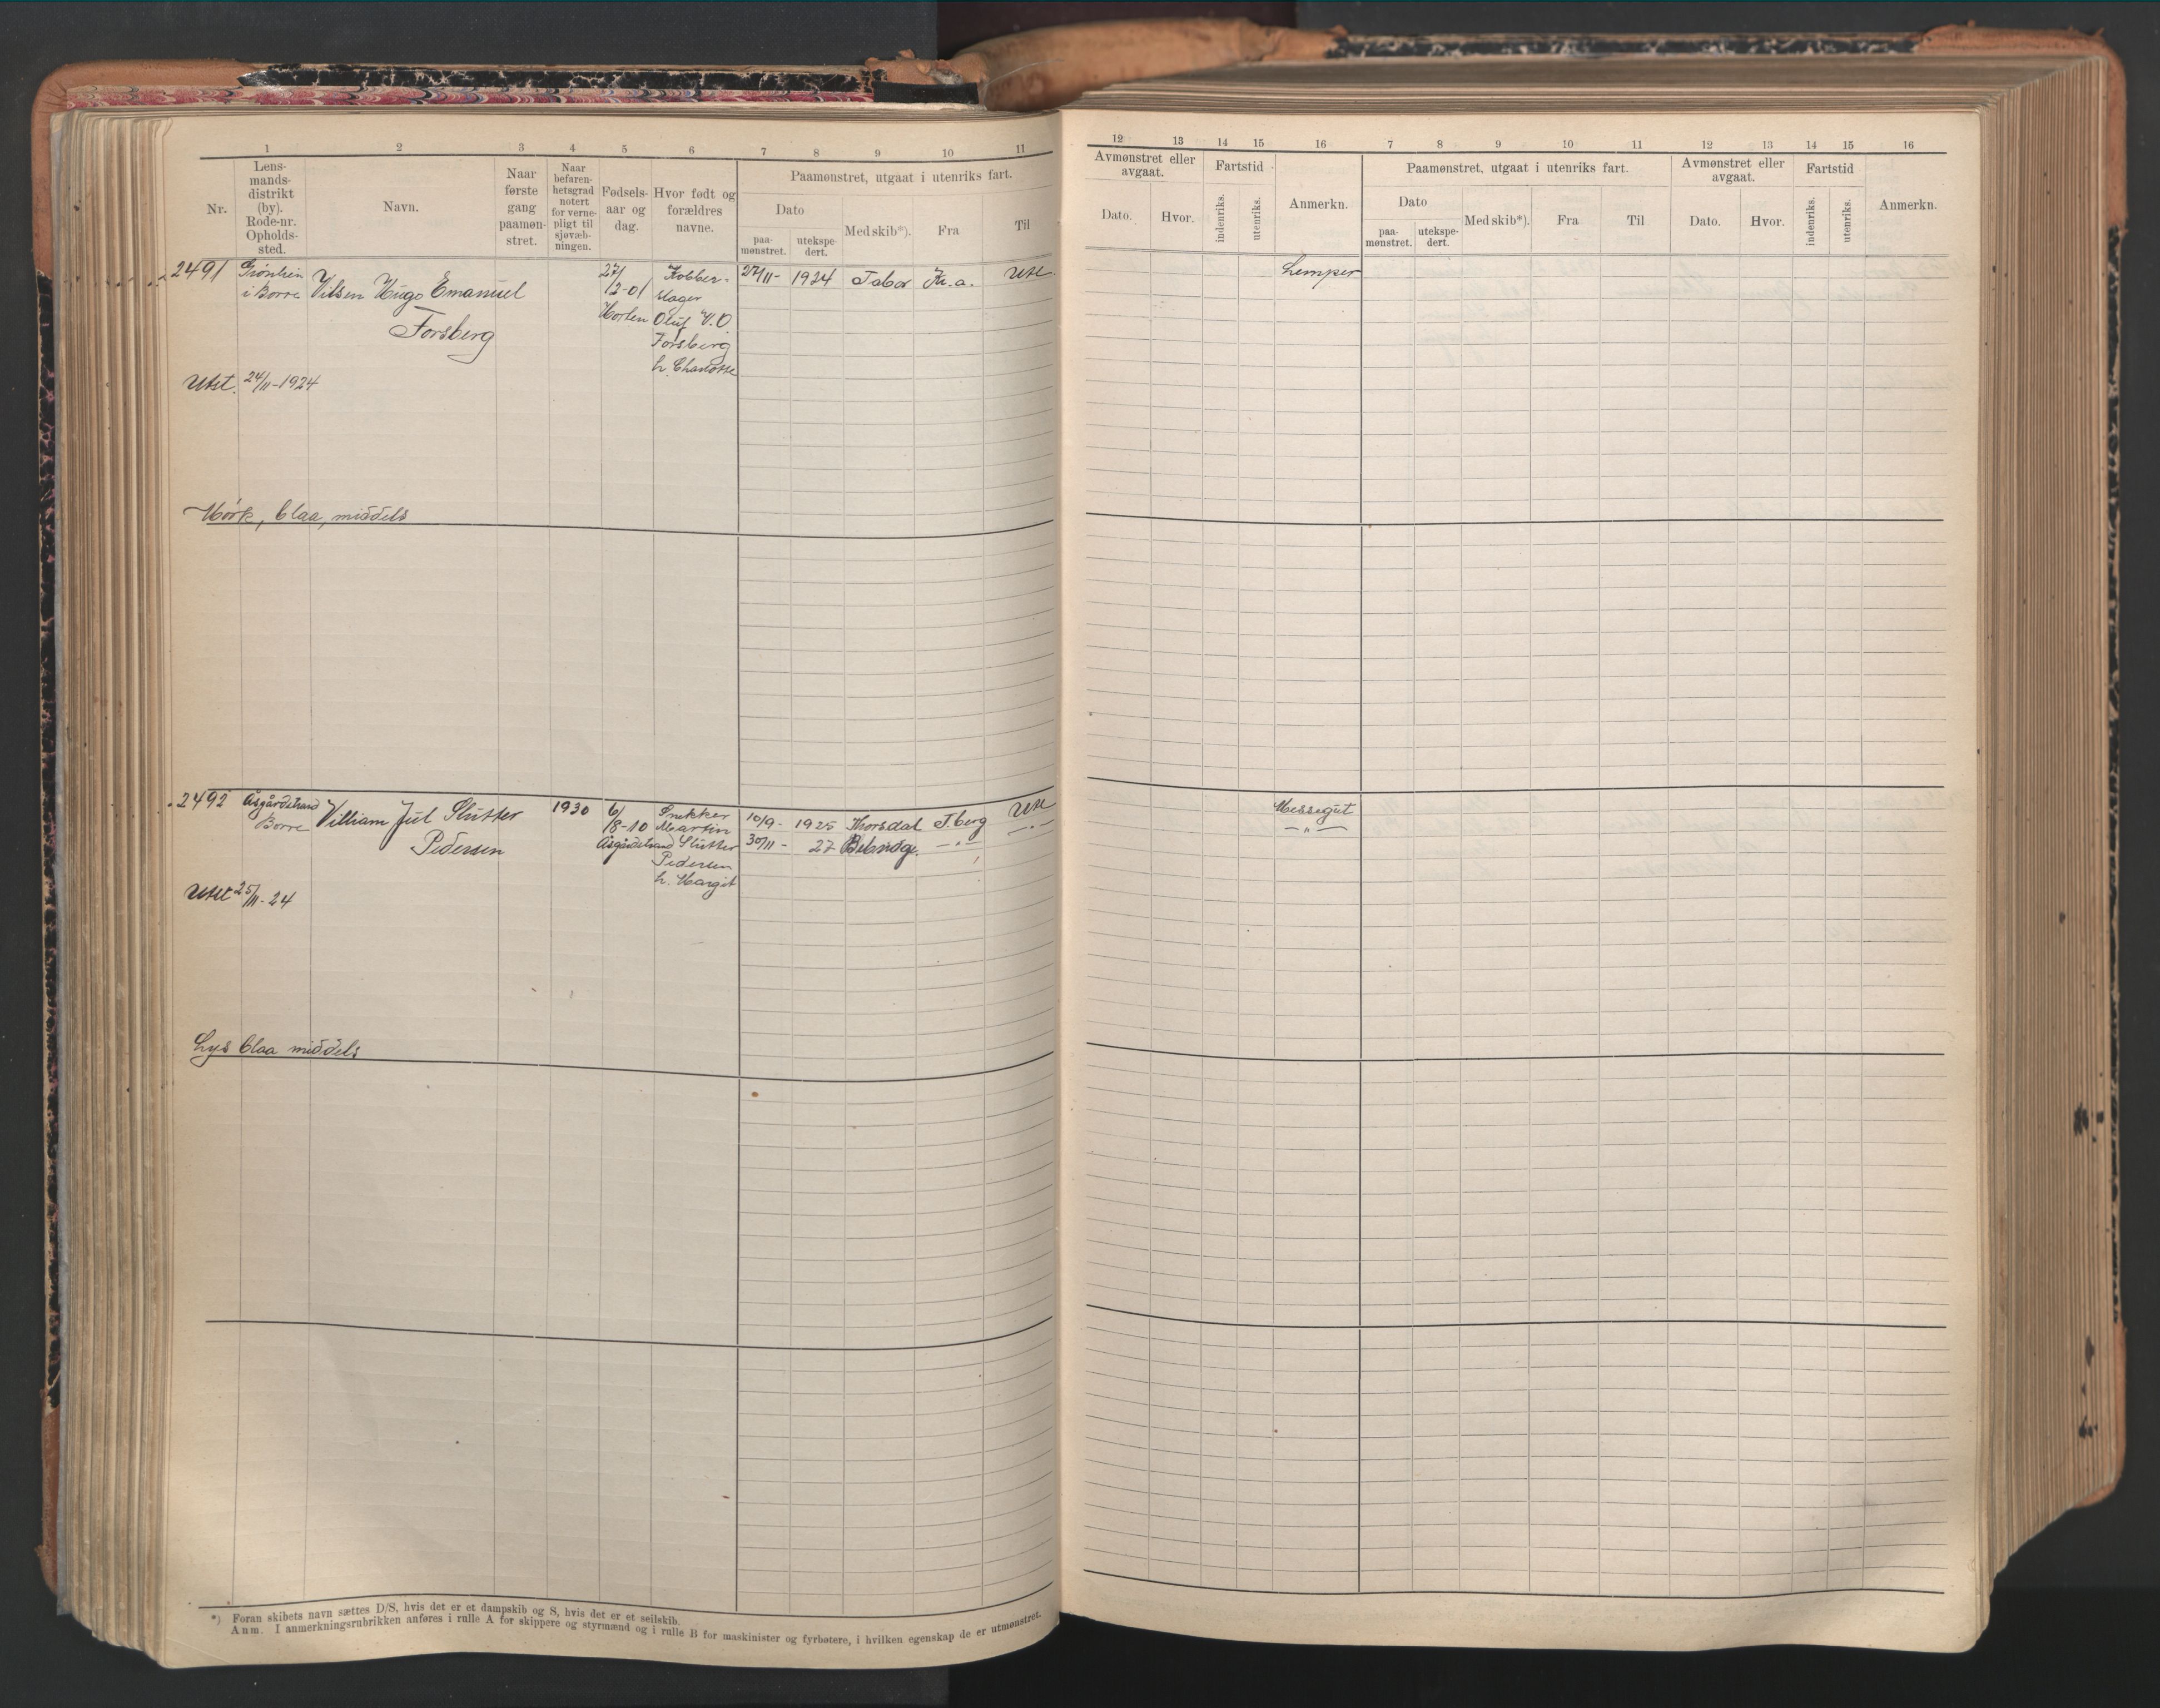 1 2 3 4 5 6 7 8 9 10 11
Nr.
Lens-
mands-
distrikt
(by).
Rode-nr.
Opholds-
sted.
Navn.
Naar
første
gang
paamøn-
stret.
Naar
befaren-
hetsgrad
notert
for verne-
pligt til
sjøvæb-
ningen.
Fødsels-
aar og
dag.
Hvor født og
forældres
navne.
Paamønstret, utgaat i utenriks fart.
Dato
paa-
mønstret.
utekspe-
dert.
Med skib*).
Fra
Til
2491
i Borre
Hugo Emanuel
Forsberg
27/
12-01
Horten
Kobber-
slager
Oluf V. O.
Forsberg
h. Charlotte
27/11- 1924 Tabor Kr.a. Ute
Utst. 24/11-1924
Mörk, blaa, middels
2492
Åsgårdstrand
Borre
William Jul Slutter
Pedersen
1930
6/
8-10
Åsgårdstrand
Snekker
Martin
Slutter
Pedersen
h. Margit
10/9- 1925 Thorsdal T.berg Ute
30/11- 27 -"- -"-
Utst 25/11-24
Lys blaa middels
*) Foran skibets navn sættes D/S, hvis det er et dampskib og S, hvis det er et seilskib.
Anm. I anmerkningsrubrikken anføres i rulle A for skippere og styrmænd og i rulle B for maskinister og fyrbøtere, i hvilken egenskap de er utmønstret.
12 13 14 15 16 7 8 9 10 11 12 13 14 15 16
Avmønstret eller
avgaat.
Dato.
Hvor.
Fartstid
indenriks.
utenriks.
Anmerkn.
Paamønstret, utgaat i utenriks fart.
Dato
paa-
mønstret.
utekspe-
dert.
Med skib*).
Fra
Til
Avmønstret eller
avgaat.
Dato.
Hvor.
Fartstid
indenriks.
utenriks.
Anmerkn.
Lemper
Messegut
-"-